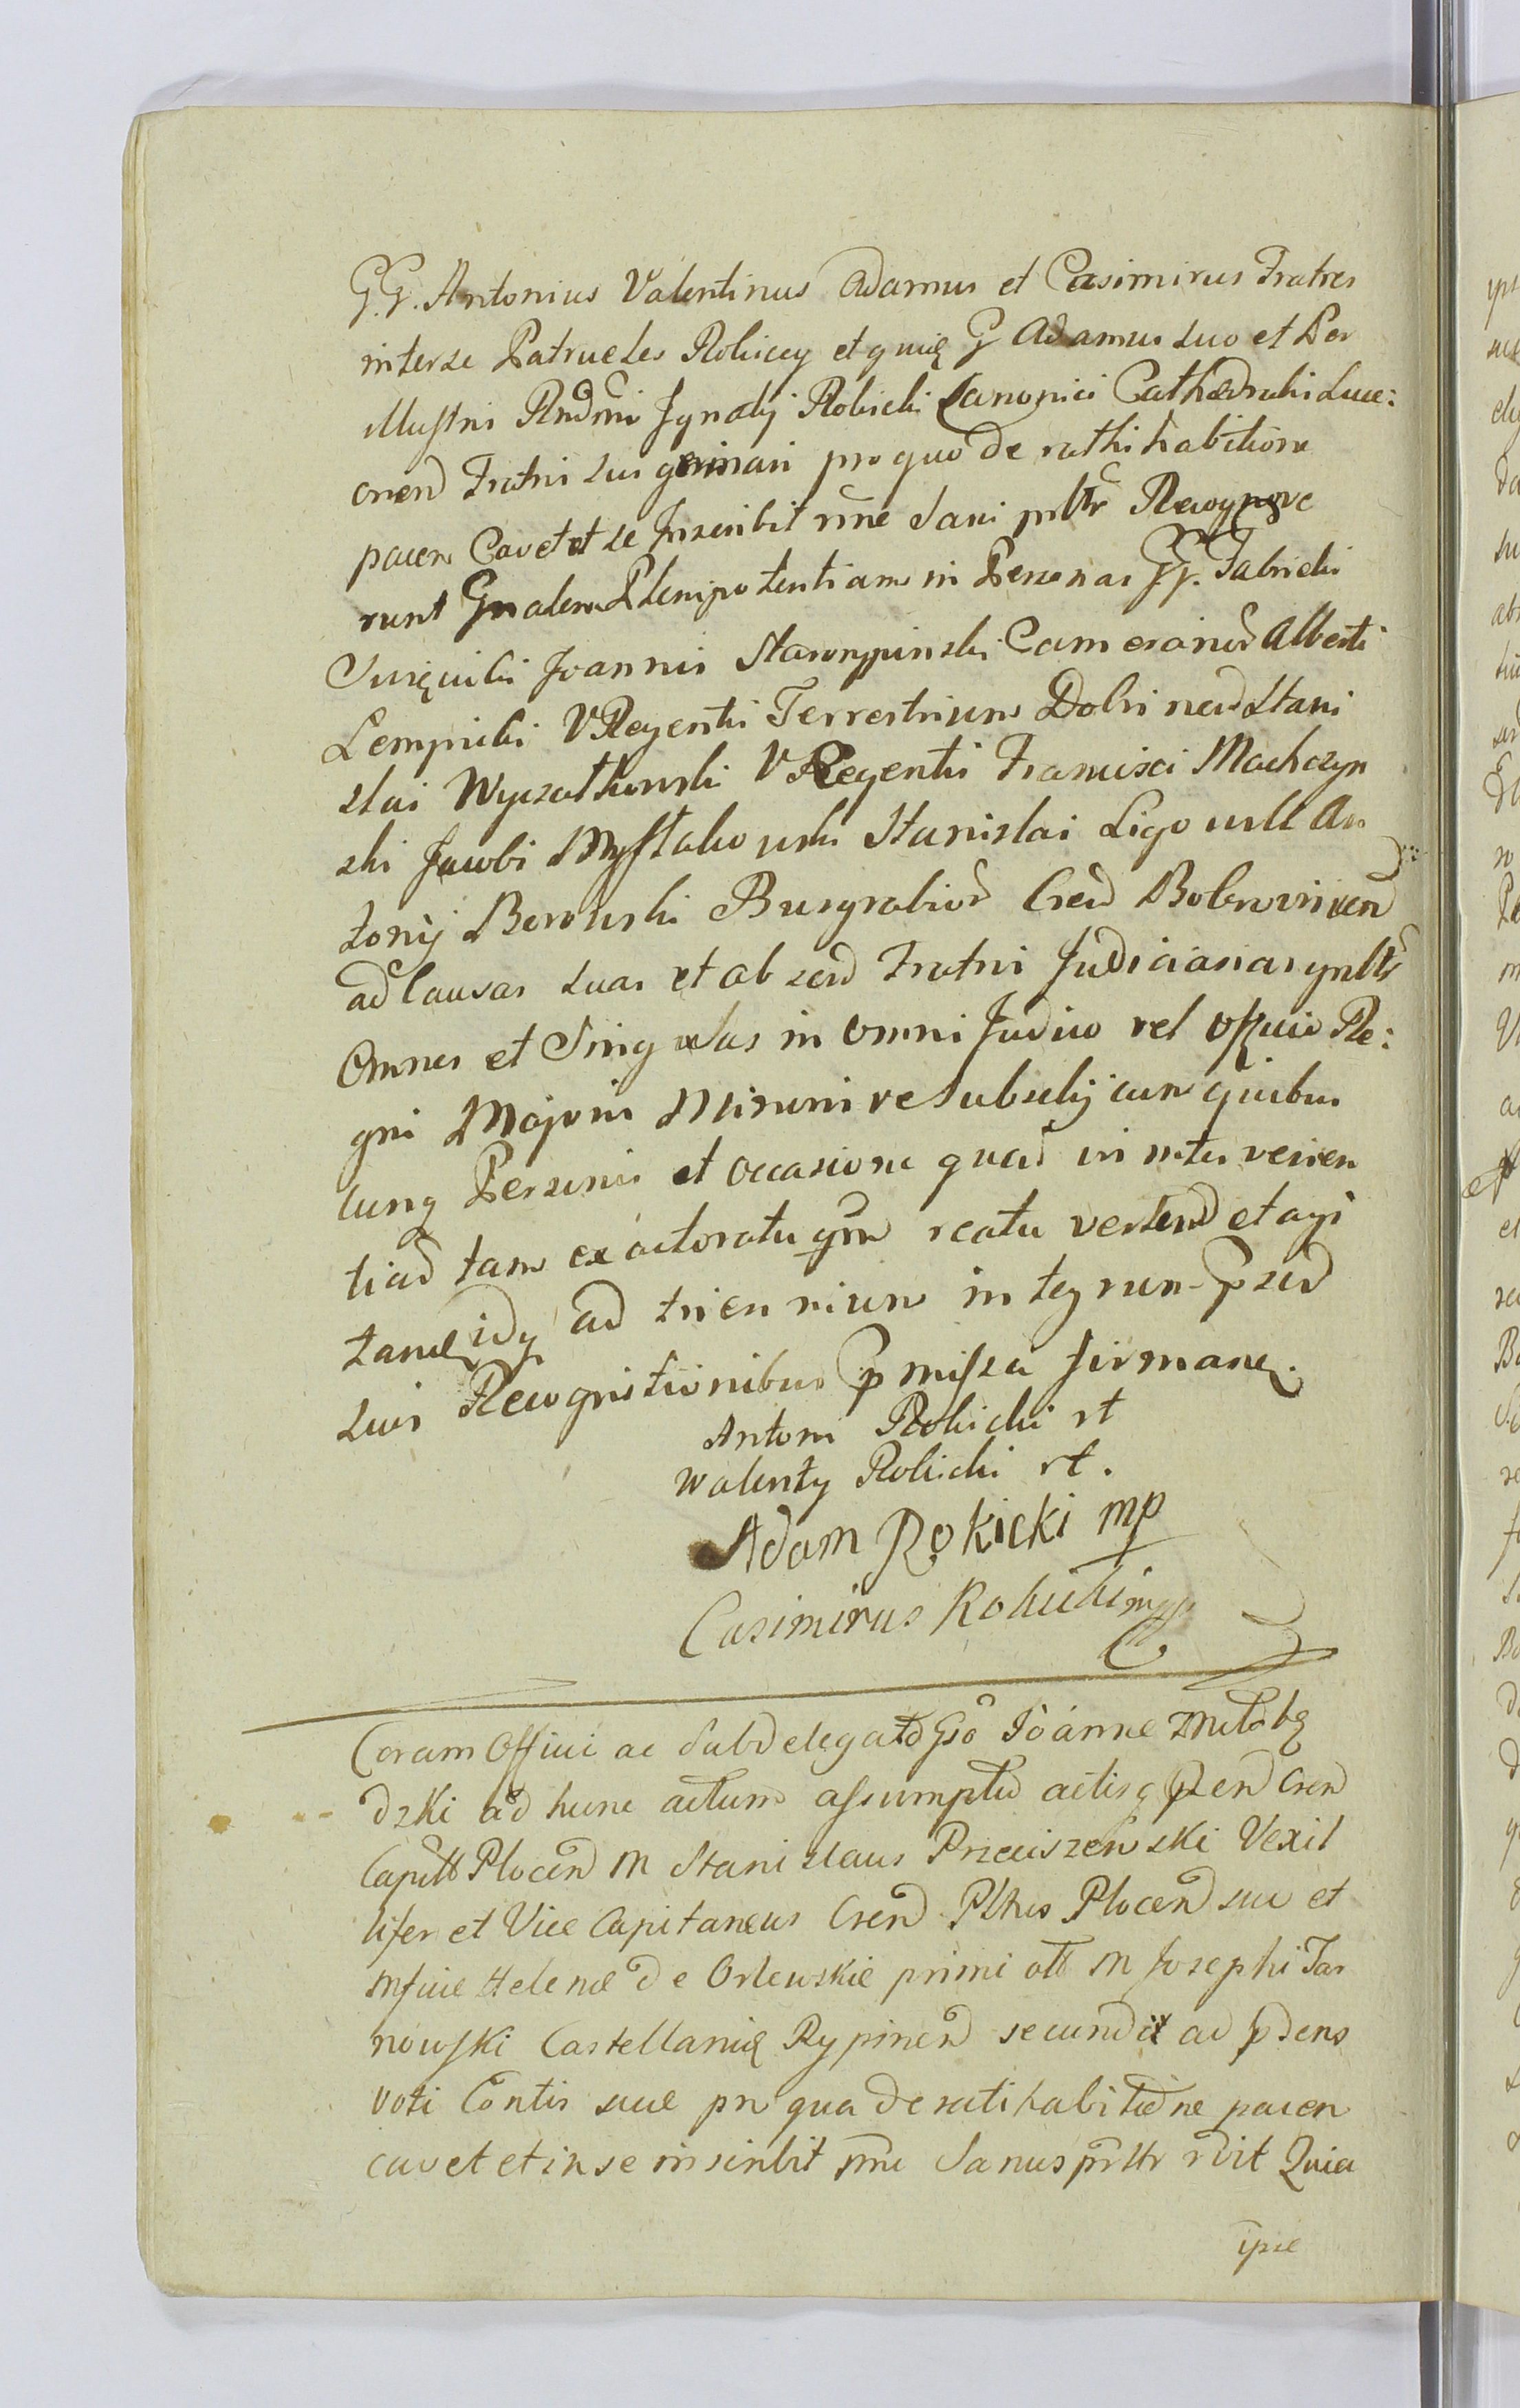 G.G. Antonius Valentinus Adamus et Casimirus Fratres
inter se Patrueles Rokiccy et quiq G Adamus suo et Per
illustris Rndmi Ignatij Rokicki Canonici Cathedralis Luce:
orien Fratris sui germani pro quo de rathihabitione
pacen Cavet et se Inscribit nne Sani pnltr Recognove
runt Gnalem Plenipotentiam in Personas GG. Gabrielis
Joannis Starorypinski Camerarior Alberti
Lempicki VRegentis Terrestrium Dobrinen Stani
slai Wyczatkowski VRegentis Francisci Machczyn
ski Jacobi Mystakowski Stanislai Ligowski An
tonij Borowski Burgrabior Cren Bobrovnicen
ad Causas suas et absen Fratris Judiciarias gnltr
Omnes et Singulas in omni Judicio vel Officio Re:
gni Majoris Minorisve Subselij cum quibus
cunq Personis et occasione quar in interveien
tiar tam ex actoratu qm reatu verten et agi
tan idq ad triennium integrum psen
suis Recognitionibus pmissa firmanq.
Antoni Rokicki rt
Walenty Rokicki rt.
Adam Rokicki mp
Casimirus Rokicki mpp
Coram Officio ac Subdelegato Gso Joanne
dzki ad hunc actum assumpto actisq pten Cren
Capitt Plocen M Stanislaus Przeciszewski Vexil
lifer et Vice Capitaneus Cren Pttus Plocen suo et
Mfice Helenæ de Orlewskie primi ott M Josephi Tar
nowski Castellaniq Rypinen secundi ad pdens
voti Contis suæ pro qua de ratihabitione pacen
cavet et in se inscribit nne Sanus pnltr rvit Quia
ipse